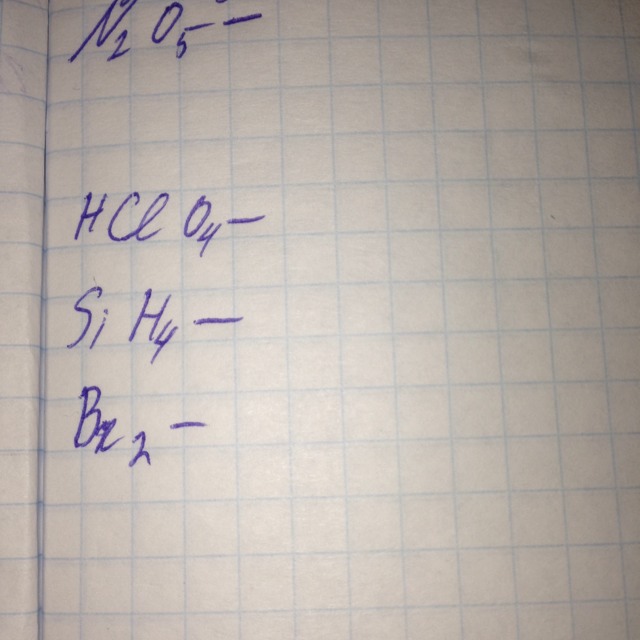 N₂O₅ —
HClO₄ —
SiH₄ —
Br₂ —